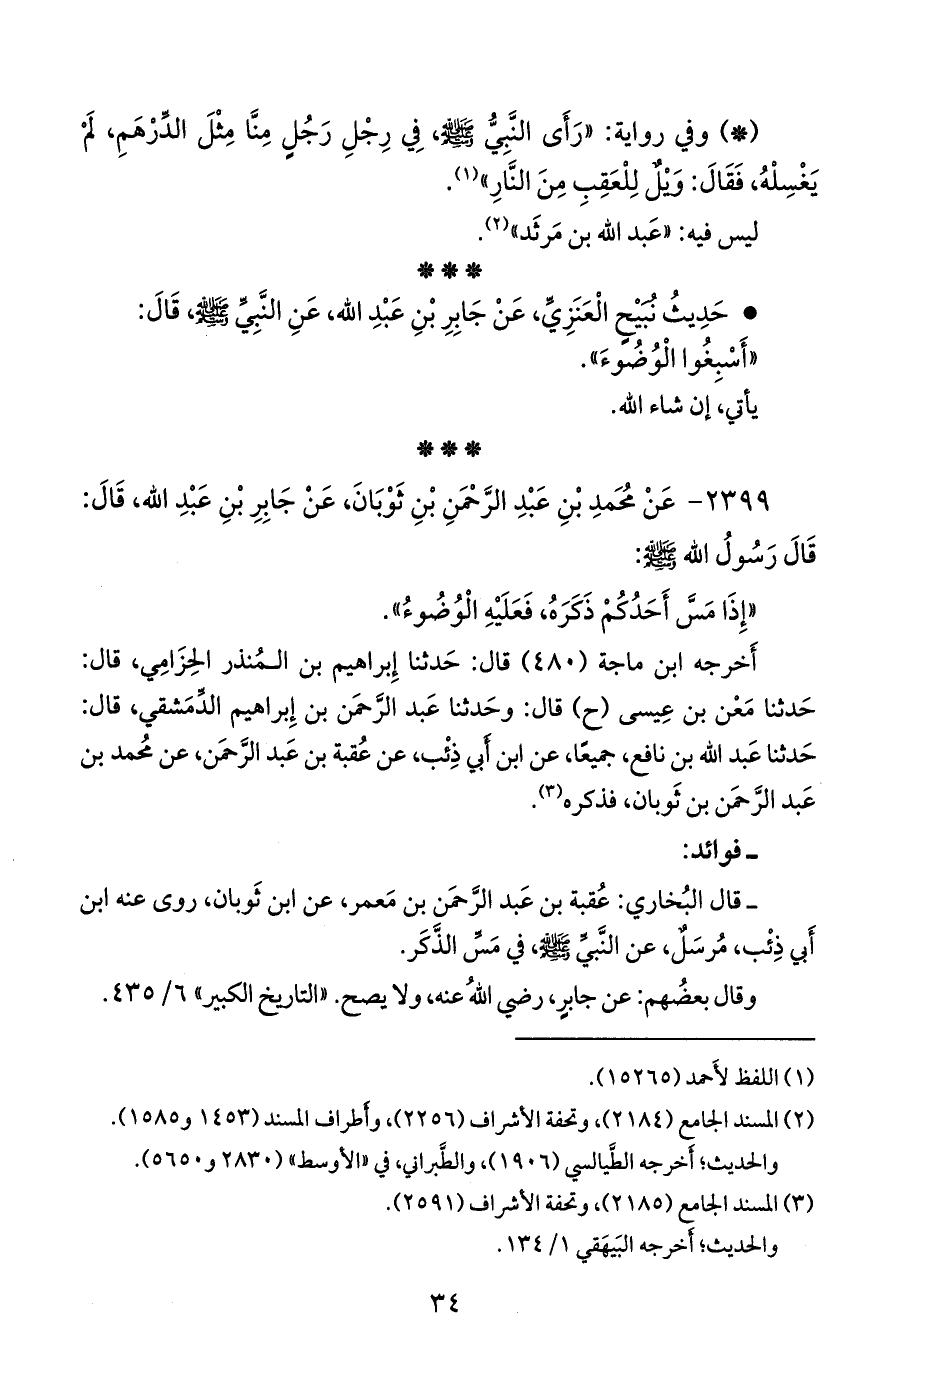 (*) وفي رواية: «رَأَى النَّبِيُّ ﷺ، فِي رِجْلِ رَجُلٍ مِنَّا مِثْلَ الدِّرْهَمِ، لَمْ
يَغْسِلْهُ، فَقَالَ: وَيْلٌ لِلْعَقِبِ مِنَ النَّارِ»(١).
ليس فيه: «عَبد الله بن مَرثَد»(٢).
***
• حَدِيثُ نُبَيْحٍ الْعَنَزِيِّ، عَنْ جَابِرِ بْنِ عَبْدِ الله، عَنِ النَّبِيِّ ﷺ، قَالَ:
«أَسْبِغُوا الْوُضُوءَ».
يأتي، إن شاء الله.
***
٢٣٩٩- عَنْ مُحَمدِ بْنِ عَبْدِ الرَّحْمَنِ بْنِ ثَوْبَانَ، عَنْ جَابِرِ بْنِ عَبْدِ الله، قَالَ:
قَالَ رَسُولُ الله ﷺ:
«إِذَا مَسَّ أَحَدُكُمْ ذَكَرَهُ، فَعَلَيْهِ الْوُضُوءُ».
أَخرجه ابن ماجة (٤٨٠) قال: حَدثنا إِبراهيم بن المُنذر الحِزَامِي، قال:
حَدثنا مَعْن بن عِيسى (ح) قال: وحَدثنا عَبد الرَّحمَن بن إِبراهيم الدِّمَشقي، قال:
حَدثنا عَبد الله بن نافع، جميعًا، عن ابن أَبي ذِئْب، عن عُقبة بن عَبد الرَّحمَن، عن مُحمد بن
عَبد الرَّحمَن بن ثَوبان، فذكره(٣).
ـ فوائد:
ـ قال البُخاري: عُقبة بن عَبد الرَّحمَن بن مَعمر، عن ابن ثَوبان، روى عنه ابن
أَبي ذِئْب، مُرسَلٌ، عن النَّبيِّ ﷺ، في مَسِّ الذَّكَر.
وقال بعضُهم: عن جابرٍ، رضي اللهُ عنه، ولا يصح. «التاريخ الكبير» ٦/ ٤٣٥.
(١) اللفظ لأَحمد (١٥٢٦٥).
(٢) المسند الجامع (٢١٨٤)، وتحفة الأشراف (٢٢٥٦)، وأَطراف المسند (١٤٥٣ و١٥٨٥).
والحديث؛ أَخرجه الطَّيالسي (١٩٠٦)، والطَّبراني، في «الأوسط» (٢٨٣٠ و٥٦٥٠).
(٣) المسند الجامع (٢١٨٥)، وتحفة الأشراف (٢٥٩١).
والحديث؛ أَخرجه البَيهَقي ١/ ١٣٤.
٣٤